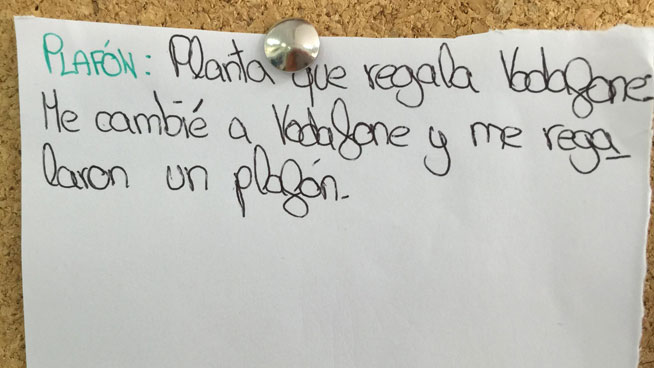 PLAFÓN: Planta que regala Vodafone.
Me cambié a Vodafone y me rega_
laron un plafón.